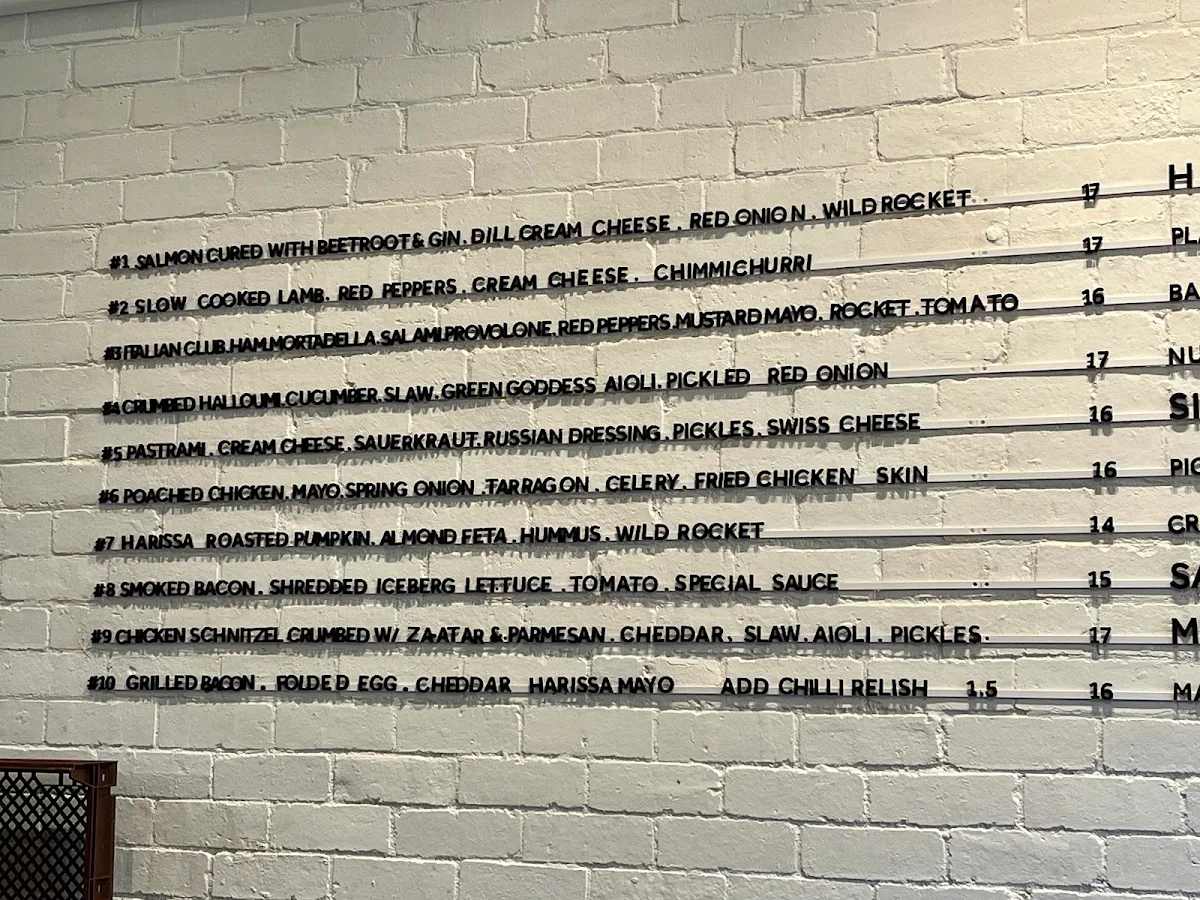 #1 SALMON CURED WITH BEETROOT & GIN. DILL CREAM CHEESE. RED ONION. WILD ROCKET.. 17
#2 SLOW COOKED LAMB. RED PEPPERS. CREAM CHEESE. CHIMMICHURRI 17
#3 ITALIAN CLUB.HAM.MORTADELLA.SALAMI.PROVOLONE.RED PEPPERS.MUSTARD MAYO. ROCKET.TOMATO 16
#4 CRUMBED HALLOUMI.CUCUMBER.SLAW.GREEN GODDESS AIOLI.PICKLED RED ONION 17
#5 PASTRAMI. CREAM CHEESE.SAUERKRAUT.RUSSIAN DRESSING.PICKLES.SWISS CHEESE 16
#6 POACHED CHICKEN.MAYO.SPRING ONION.TARRAGON. CELERY. FRIED CHICKEN SKIN 16
#7 HARISSA ROASTED PUMPKIN. ALMOND FETA.HUMMUS. WILD ROCKET 14
#8 SMOKED BACON. SHREDDED ICEBERG LETTUCE.TOMATO.SPECIAL SAUCE 15
#9 CHICKEN SCHNITZEL.CRUMBED W/ ZA'ATAR &.PARMESAN. CHEDDAR. SLAW.AIOLI. PICKLES. 17
#10 GRILLED BACON. FOLDED EGG. CHEDDAR HARISSA MAYO ADD CHILLI RELISH 1.5 16